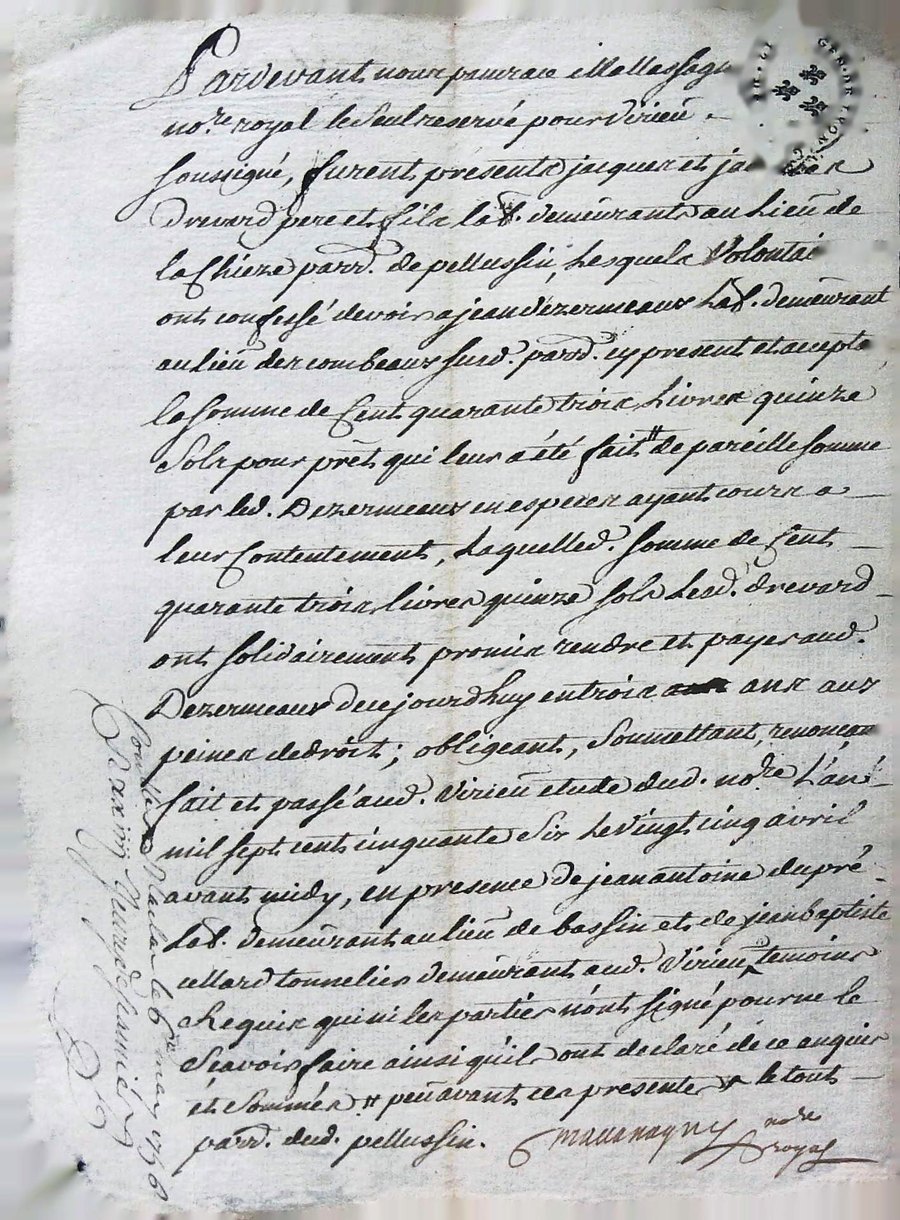 Pardevant nous
no.re royal le seul reservé pour Virieu
soussigné, furent présents jacques et
drevard pere et fils lab. demeurants au Lieu de
la Chieze parr. de pellussin, Lesquels Volontai
ont confessé devoir a jean dezermeaux Lab. demeurant
au lieu des combeaux susd. parr. cy present et acepta
la somme de Cent quarante trois Livres quinze
sols pour prêt qui leur a été fait # de pareille somme
par led. Dezermeaux en especes ayant cours a
leur Contentement, Laquelled. somme de Cent
quarante trois livres quinze sols Lesd. drevard
ont solidairement promis rendre et payer aud.
Dezermeaux de ce jourdhuy en trois ans aux
peines de droit; obligeant, soumettant, renonçant
fait et passé aud. Virieu etude dud. no.re L'an
mil sept cent cinquante six Le vingt cinq avril
avant midy, en presence de jean antoine dupré
Lab. demeurant au lieu de bassin et de jean baptiste
cellard tonnelier demeurant aud. Virieu temoins
Requis qui ni les parties n'ont signé pour ne le
sçavoir faire ainsi qu'ils ont declaré de ce enquis
et sommés # peu avant ces presentes * le tout
parr. dud. pellussin.
no.re
royal
le 6 may 1756